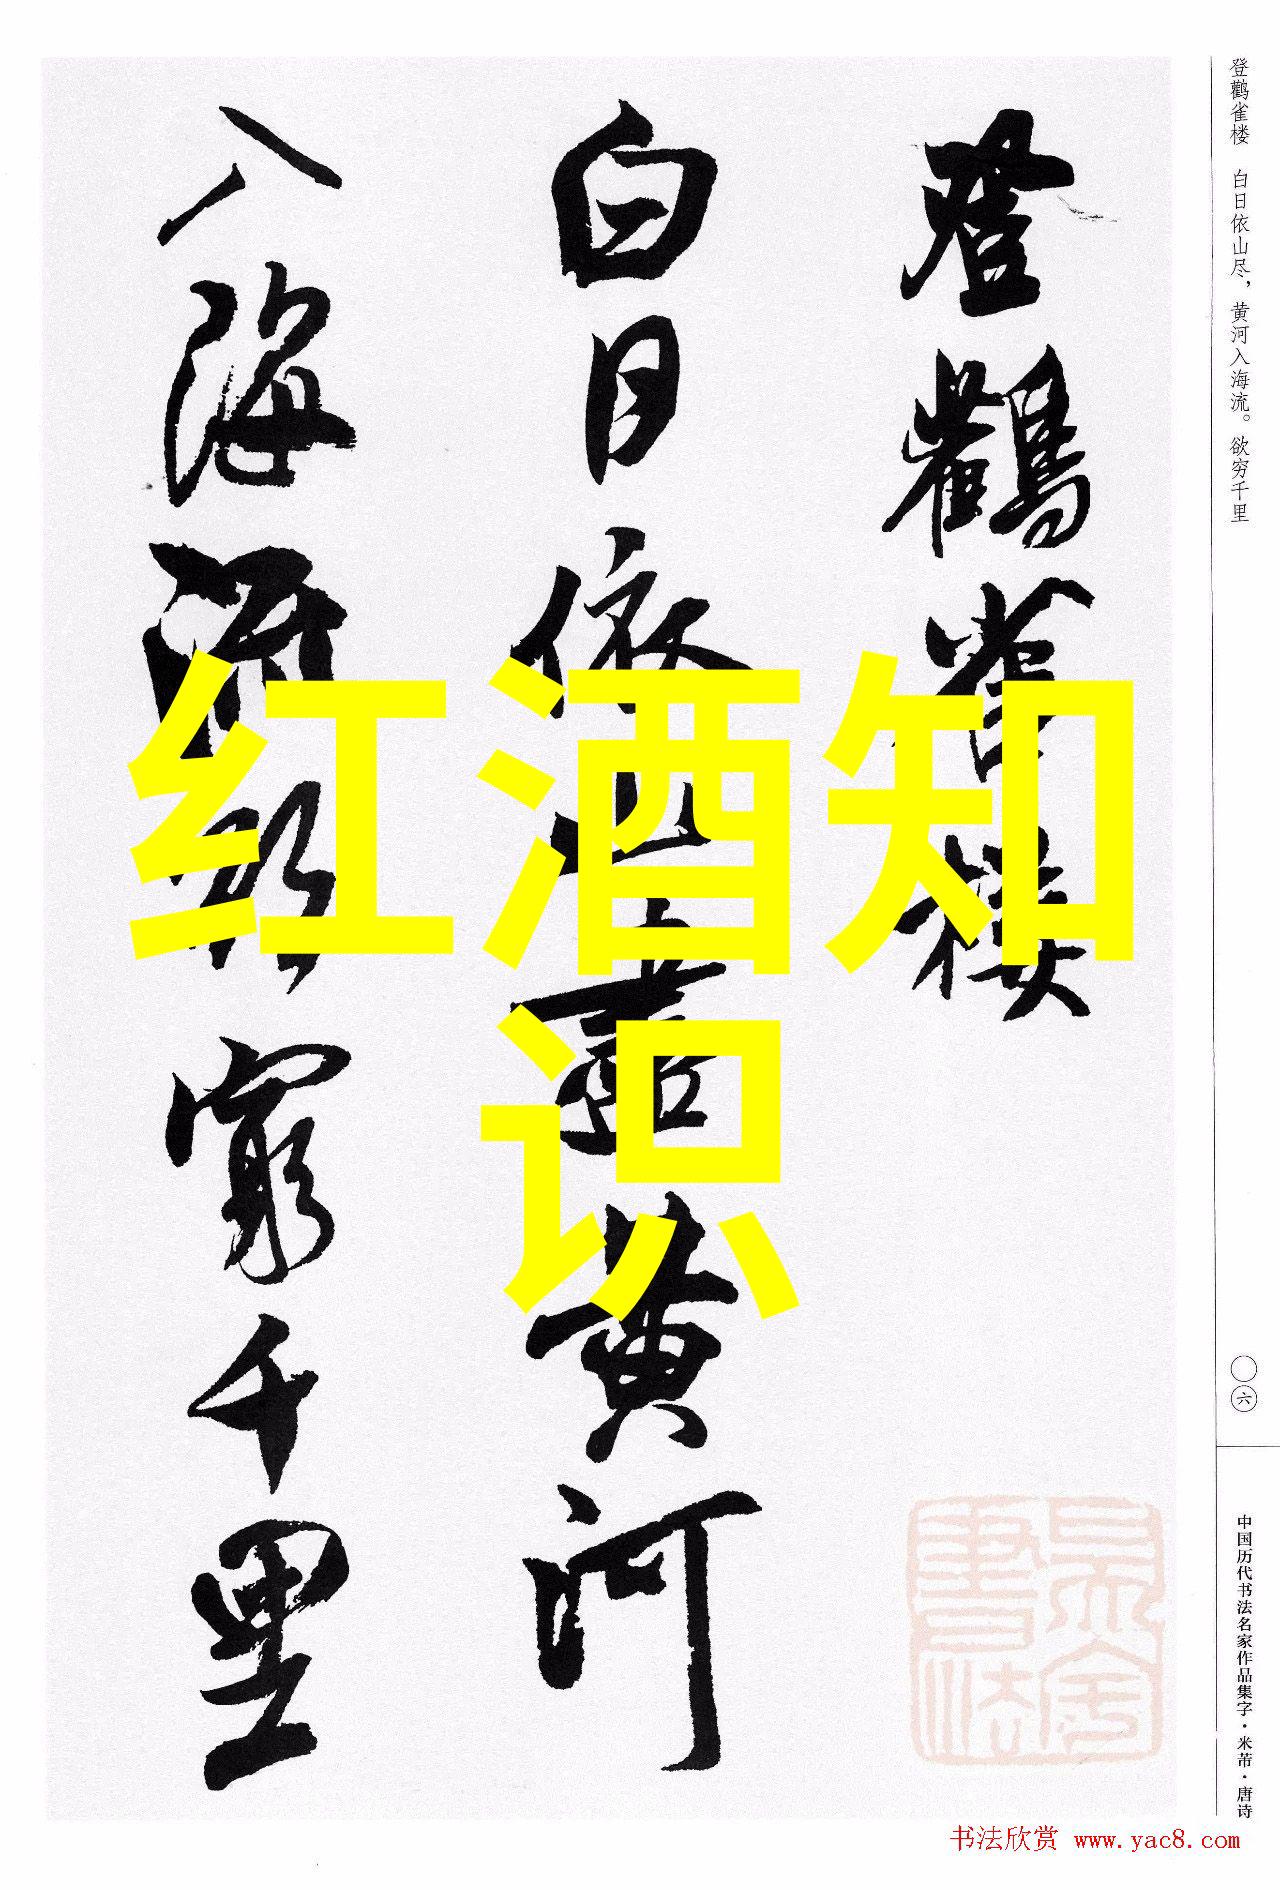 登鹳雀楼
白日依山尽黄河
入海流欲穷千里
登鹳雀楼 白日依山尽，黄河入海流。欲穷千里
〇六
中国历代书法名家作品集字·米芾·唐诗
红酒知
识
书法欣赏 www.yac8.com